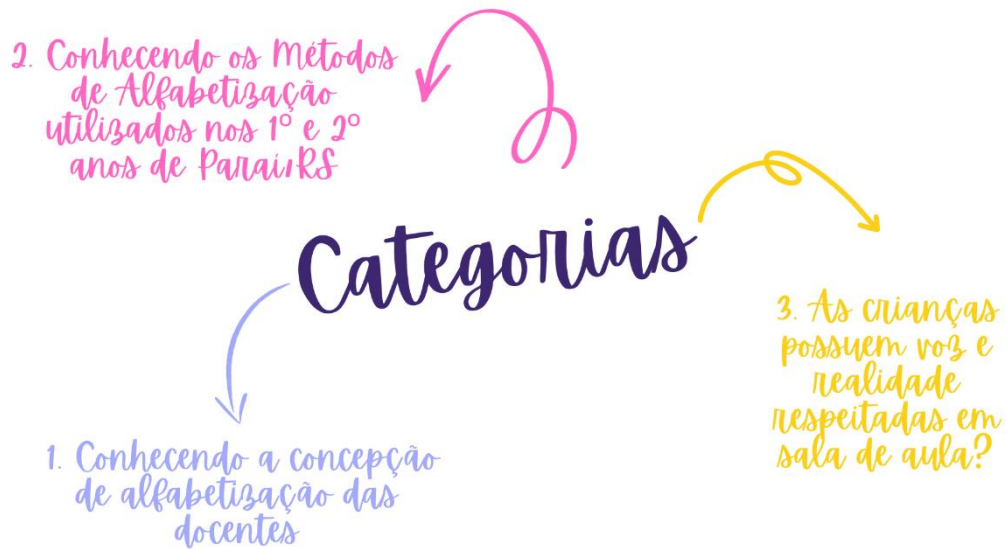 2. Conhecendo os Métodos
de Alfabetização
utilizados nos 1º e 2º
anos de Paraí,RS
Categorias
3. As crianças
possuem voz e
realidade
respeitadas em
sala de aula?
1. Conhecendo a concepção
de alfabetização das
docentes